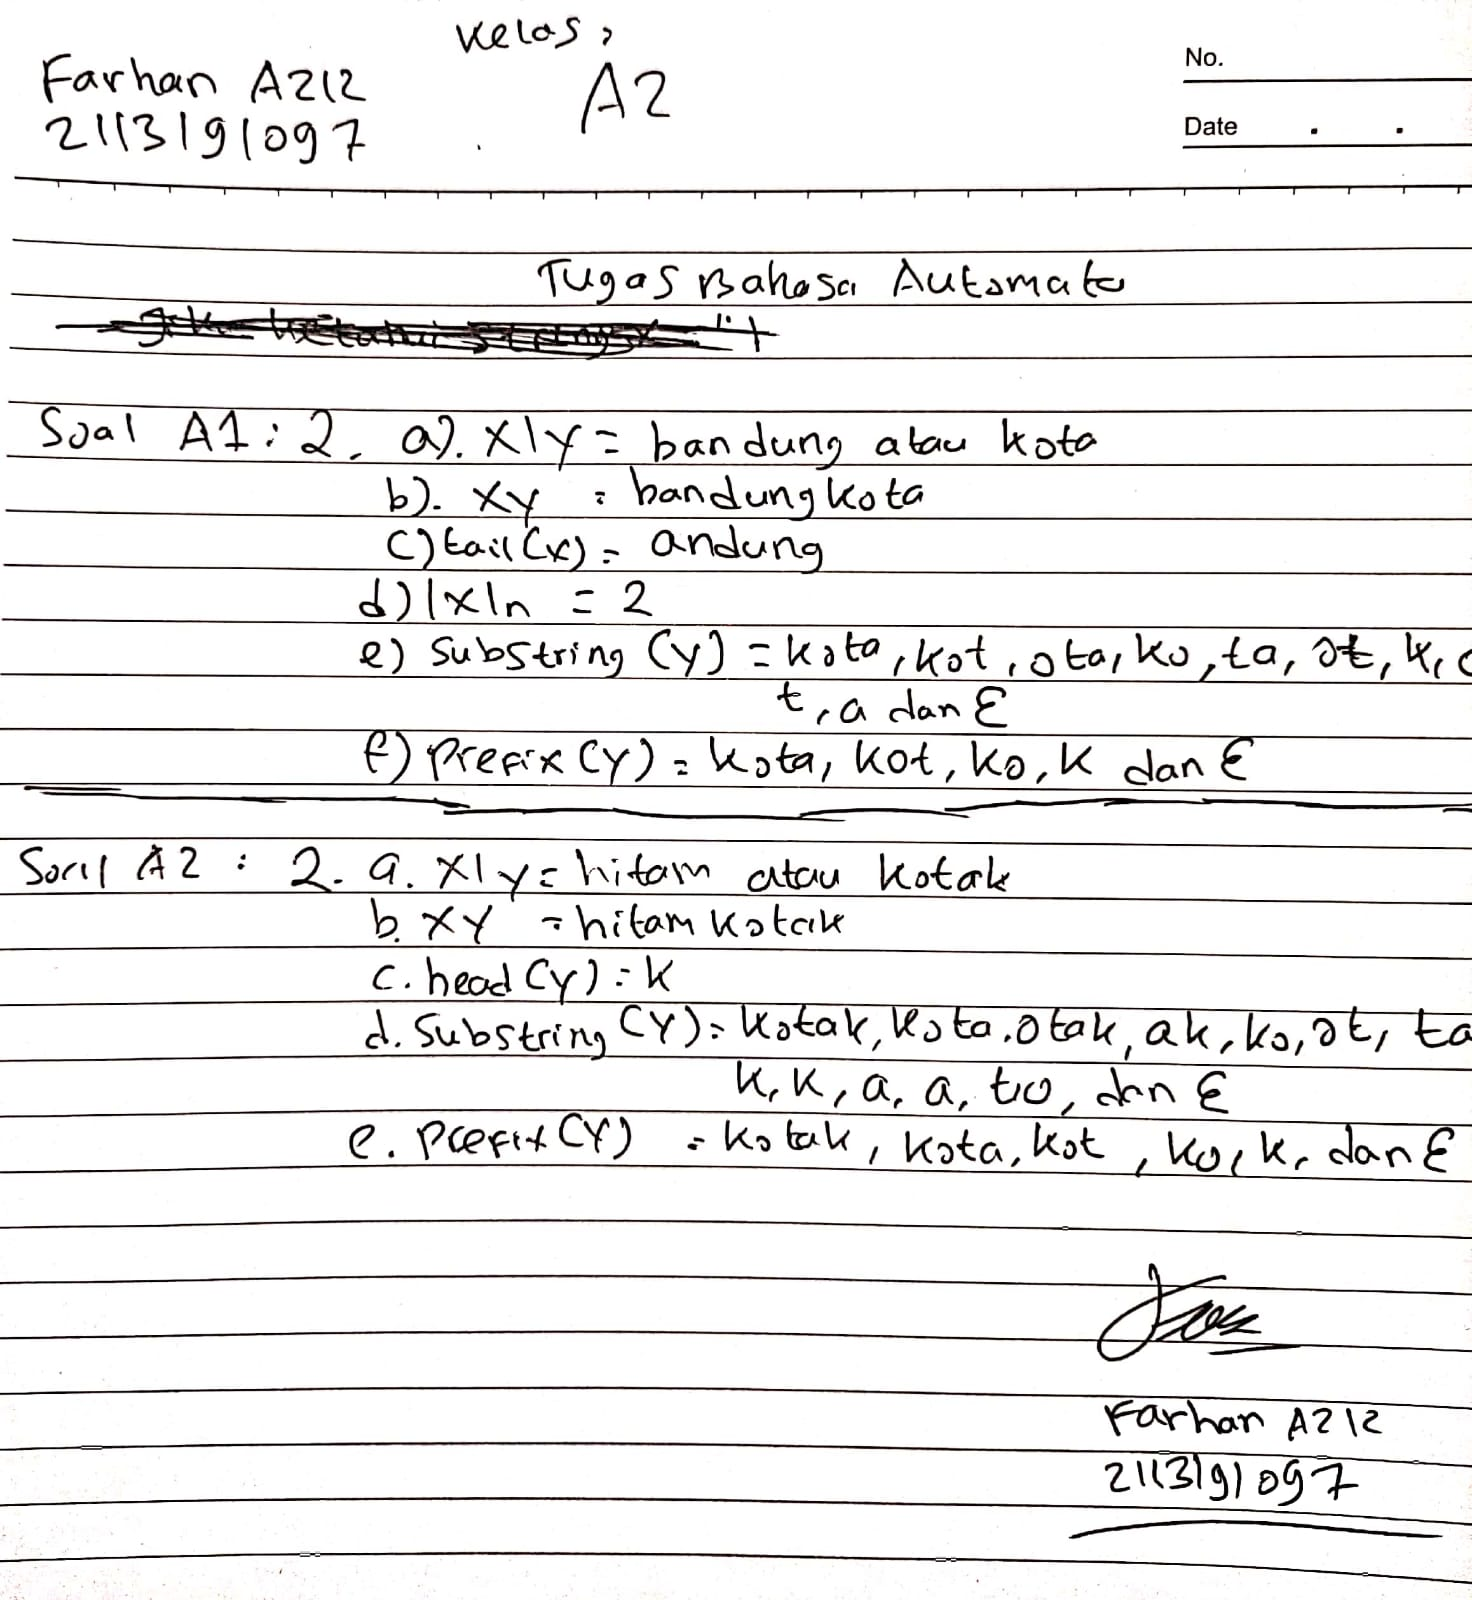 Kelas :
Farhan Aziz
A2
2113191097
No.
Date . .
Tugas Bahasa Automata
Soal A1 : 2. a). x|y = bandung atau kota
b). xy = bandung kota
c) tail (x) = andung
d) |x|n = 2
e) Substring (y) = kota, kot, ota, ko, ta, ot, k, o
t, a dan ε
f) prefix (y) = kota, kot, ko, k dan ε
Soal A2 : 2. a. x|y = hitam atau kotak
b. xy = hitam kotak
c. head (y) = k
d. Substring (y) = kotak, kota, otak, ak, ko, ot, ta
k, k, a, a, dan ε
e. Prefix (y) = kotak, kota, kot, ko, k, dan ε
Farhan Aziz
2113191097